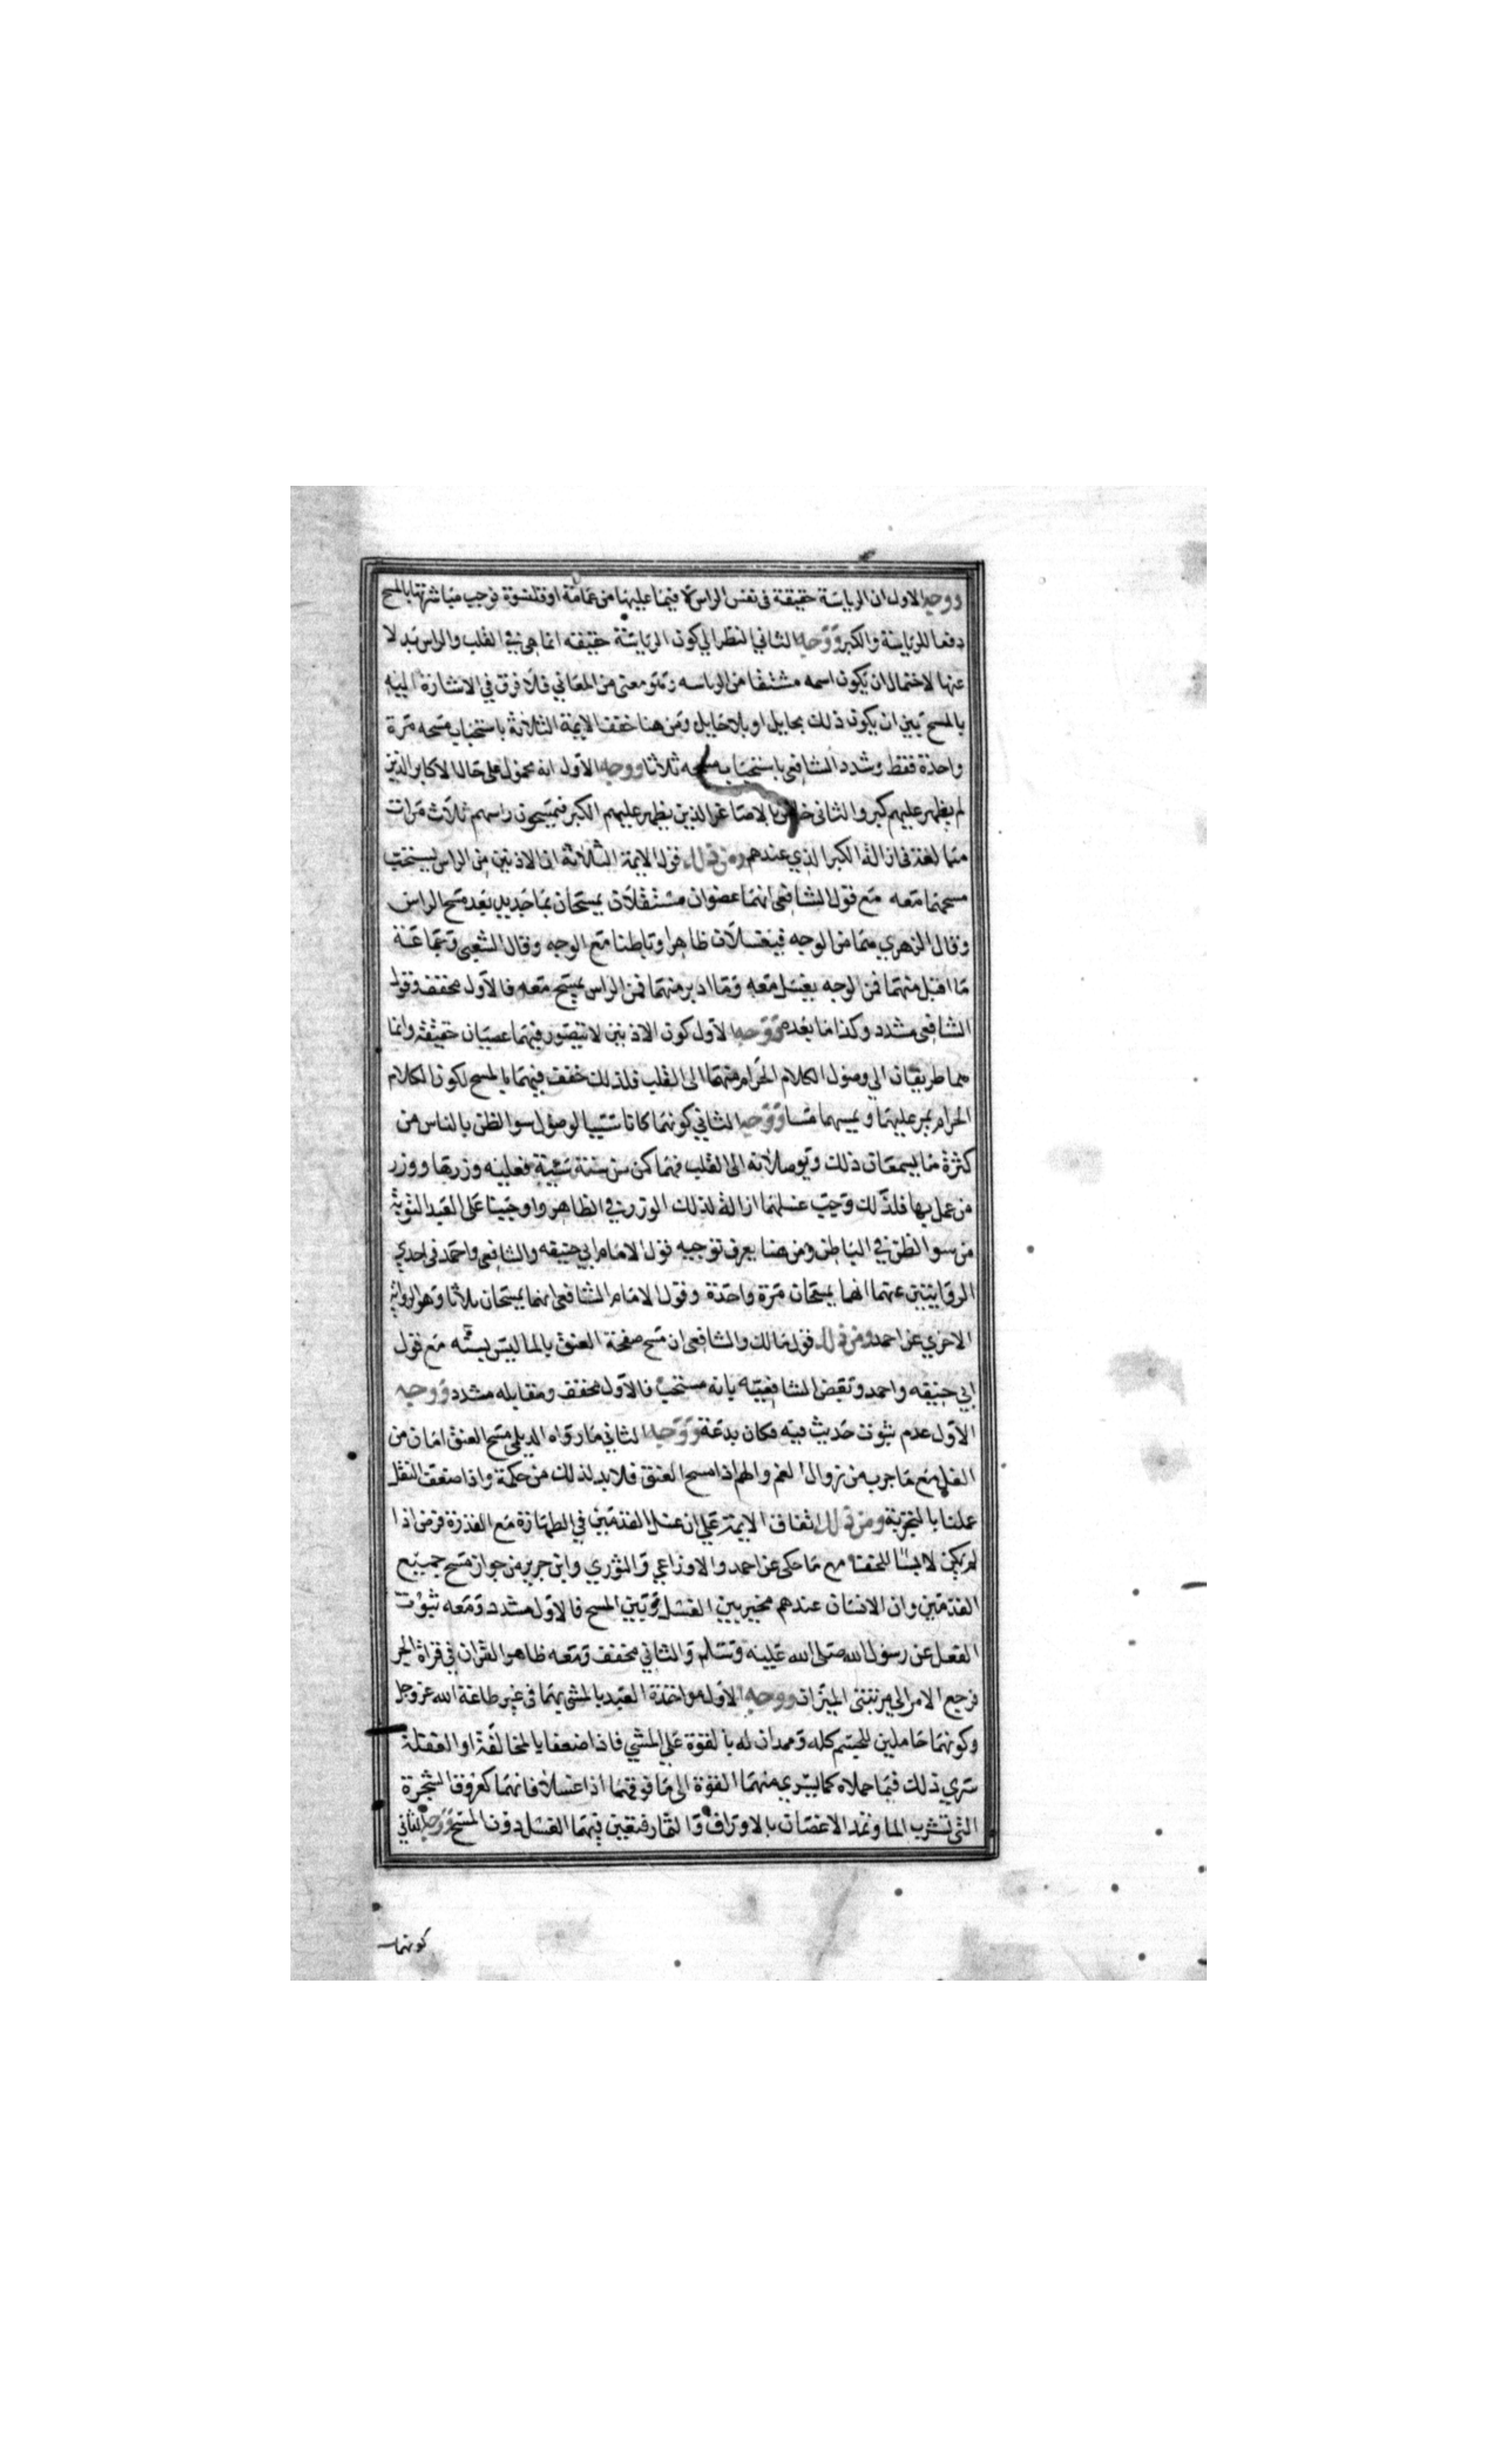 ووجه الاول ان الرياسة حقيقة في نفس الراس لا فيما عليها من عمامة او قلنسوة فوجب مباشرتها بالمسح
دفعا للرياسة والكبر ووجه الثاني النظر الي كون الرياسة حقيقه انما هي في القلب والراس بدلا
عنها لاحتمال ان يكون اسمه مشتقا من الرياسه وهو معني من المعاني فلا فرق في الاشارة اليه
بالمسح بين ان يكون ذلك بحايل او بلا حايل ومن هنا خفف الايمة الثلاثة باستحباب مسحه مرة
واحدة فقط وشدد الشافعي باستحبابه مسحه ثلاثا ووجه الاول انه محمول على حال الاكابر الذين
لم يظهر عليهم كبر والثاني خاص بالاصاغر الذين يظهر عليهم الكبر فيمسحون راسهم ثلاث مرات
مبالغة في ازالة الكبر الذي عندهم ومن ذلك قول الايمة الثلاثة ان الاذنين من الراس يستحب
مسحهما معه مع قول الشافعي انهما عضوان مستقلان يمسحان بما جديد بعد مسح الراس
وقال الزهري هما من الوجه فيغسلان ظاهرا وباطنا مع الوجه وقال الشعبي وجماعة
ما اقبل منهما فمن الوجه يغسل معه وما ادبر منهما فمن الراس يمسح معه فالاول مخفف وقول
الشافعي مشدد وكذا ما بعده ووجه الاول كون الاذنين لا يتصور فيهما عصيان حقيقة وانما
هما طريقان الي وصول الكلام الحرام منهما الى القلب فلذلك خفف فيهما بالمسح لكون الكلام
الحرام يمر عليهما ويمسهما مسا ووجه الثاني كونهما كانا سببا لوصول سو الظن بالناس من
كثرة ما يسمعان ذلك ويوصلانه الى القلب فهما كمن سن سنة سيية فعليه وزرها ووزر
من عمل بها فلذلك وجب غسلهما ازالة لذلك الوزر في الظاهر واوجبنا على العبد التوبة
من سو الظن في الباطن ومن هنا يعرف توجيه قول الامام ابي حنيفه والشافعي واحمد في احدي
الروايتين عنهما انهما يمسحان مرة واحدة وقول الامام الشافعي انهما يمسحان ثلاثا وهو الرواية
الاخري عن احمد ومن ذلك قول مالك والشافعي ان مسح صفحة العنق بالما ليس بسنه مع قول
ابي حنيفه واحمد وبعض الشافعيه بانه مستحب فالاول مخفف ومقابله مشدد ووجه
الاول عدم ثبوت حديث فيه فكان بدعة ووجه الثاني ما رواه الديلمي مسح العنق امان من
الغل مع ما جرب من زوال الغم والهم اذا مسح العنق فلا بد لذلك من حكمة واذا ضعف النقل
عملنا بالتجربة ومن ذلك اتفاق الايمة علي ان غسل القدمين في الطهارة مع القدرة فرض اذا
لم يكن لابسا للخف مع ما حكى عن احمد والاوزاعي والثوري وابن جرير من جواز مسح جميع
القدمين وان الانسان عندهم مخير بين الغسل وبين المسح فالاول مشدد ومعه ثبوت
الفعل عن رسول الله صلى الله عليه وسلم والثاني مخفف ومعه ظاهر القران في قراة الجر
فرجع الامر الى مرتبتي الميزان ووجه الاول مواخذة العبد بالمشي بهما في غير طاعة الله عز وجل
وكونهما حاملين للجسم كله وممدان له بالقوة علي المشي فاذا ضعفا بالمخالفة او الغفلة
سري ذلك فيما حملاه كما يسري منهما القوة الى ما فوقهما اذا غسلا فانهما كعروق الشجرة
التي تشرب الما وتمد الاغصان بالاوراق والثمار فتعين فيهما الغسل دون المسح ووجه الثاني
كونهما